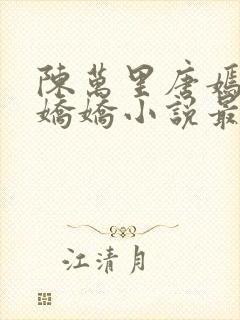 陳萬里唐嫣
嬌嬌小說最
江清月